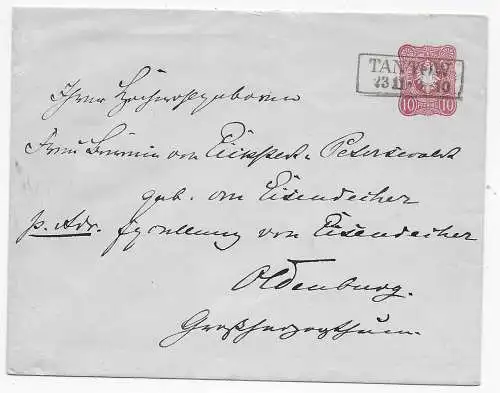 TANTOW
10 10
Ihrer Hochwohlgeboren
Frau von Eickstedt Peterswaldt
geb. von Eisendecher
p. Adr. von Eisendecher
Oldenburg.
Großherzogthum.